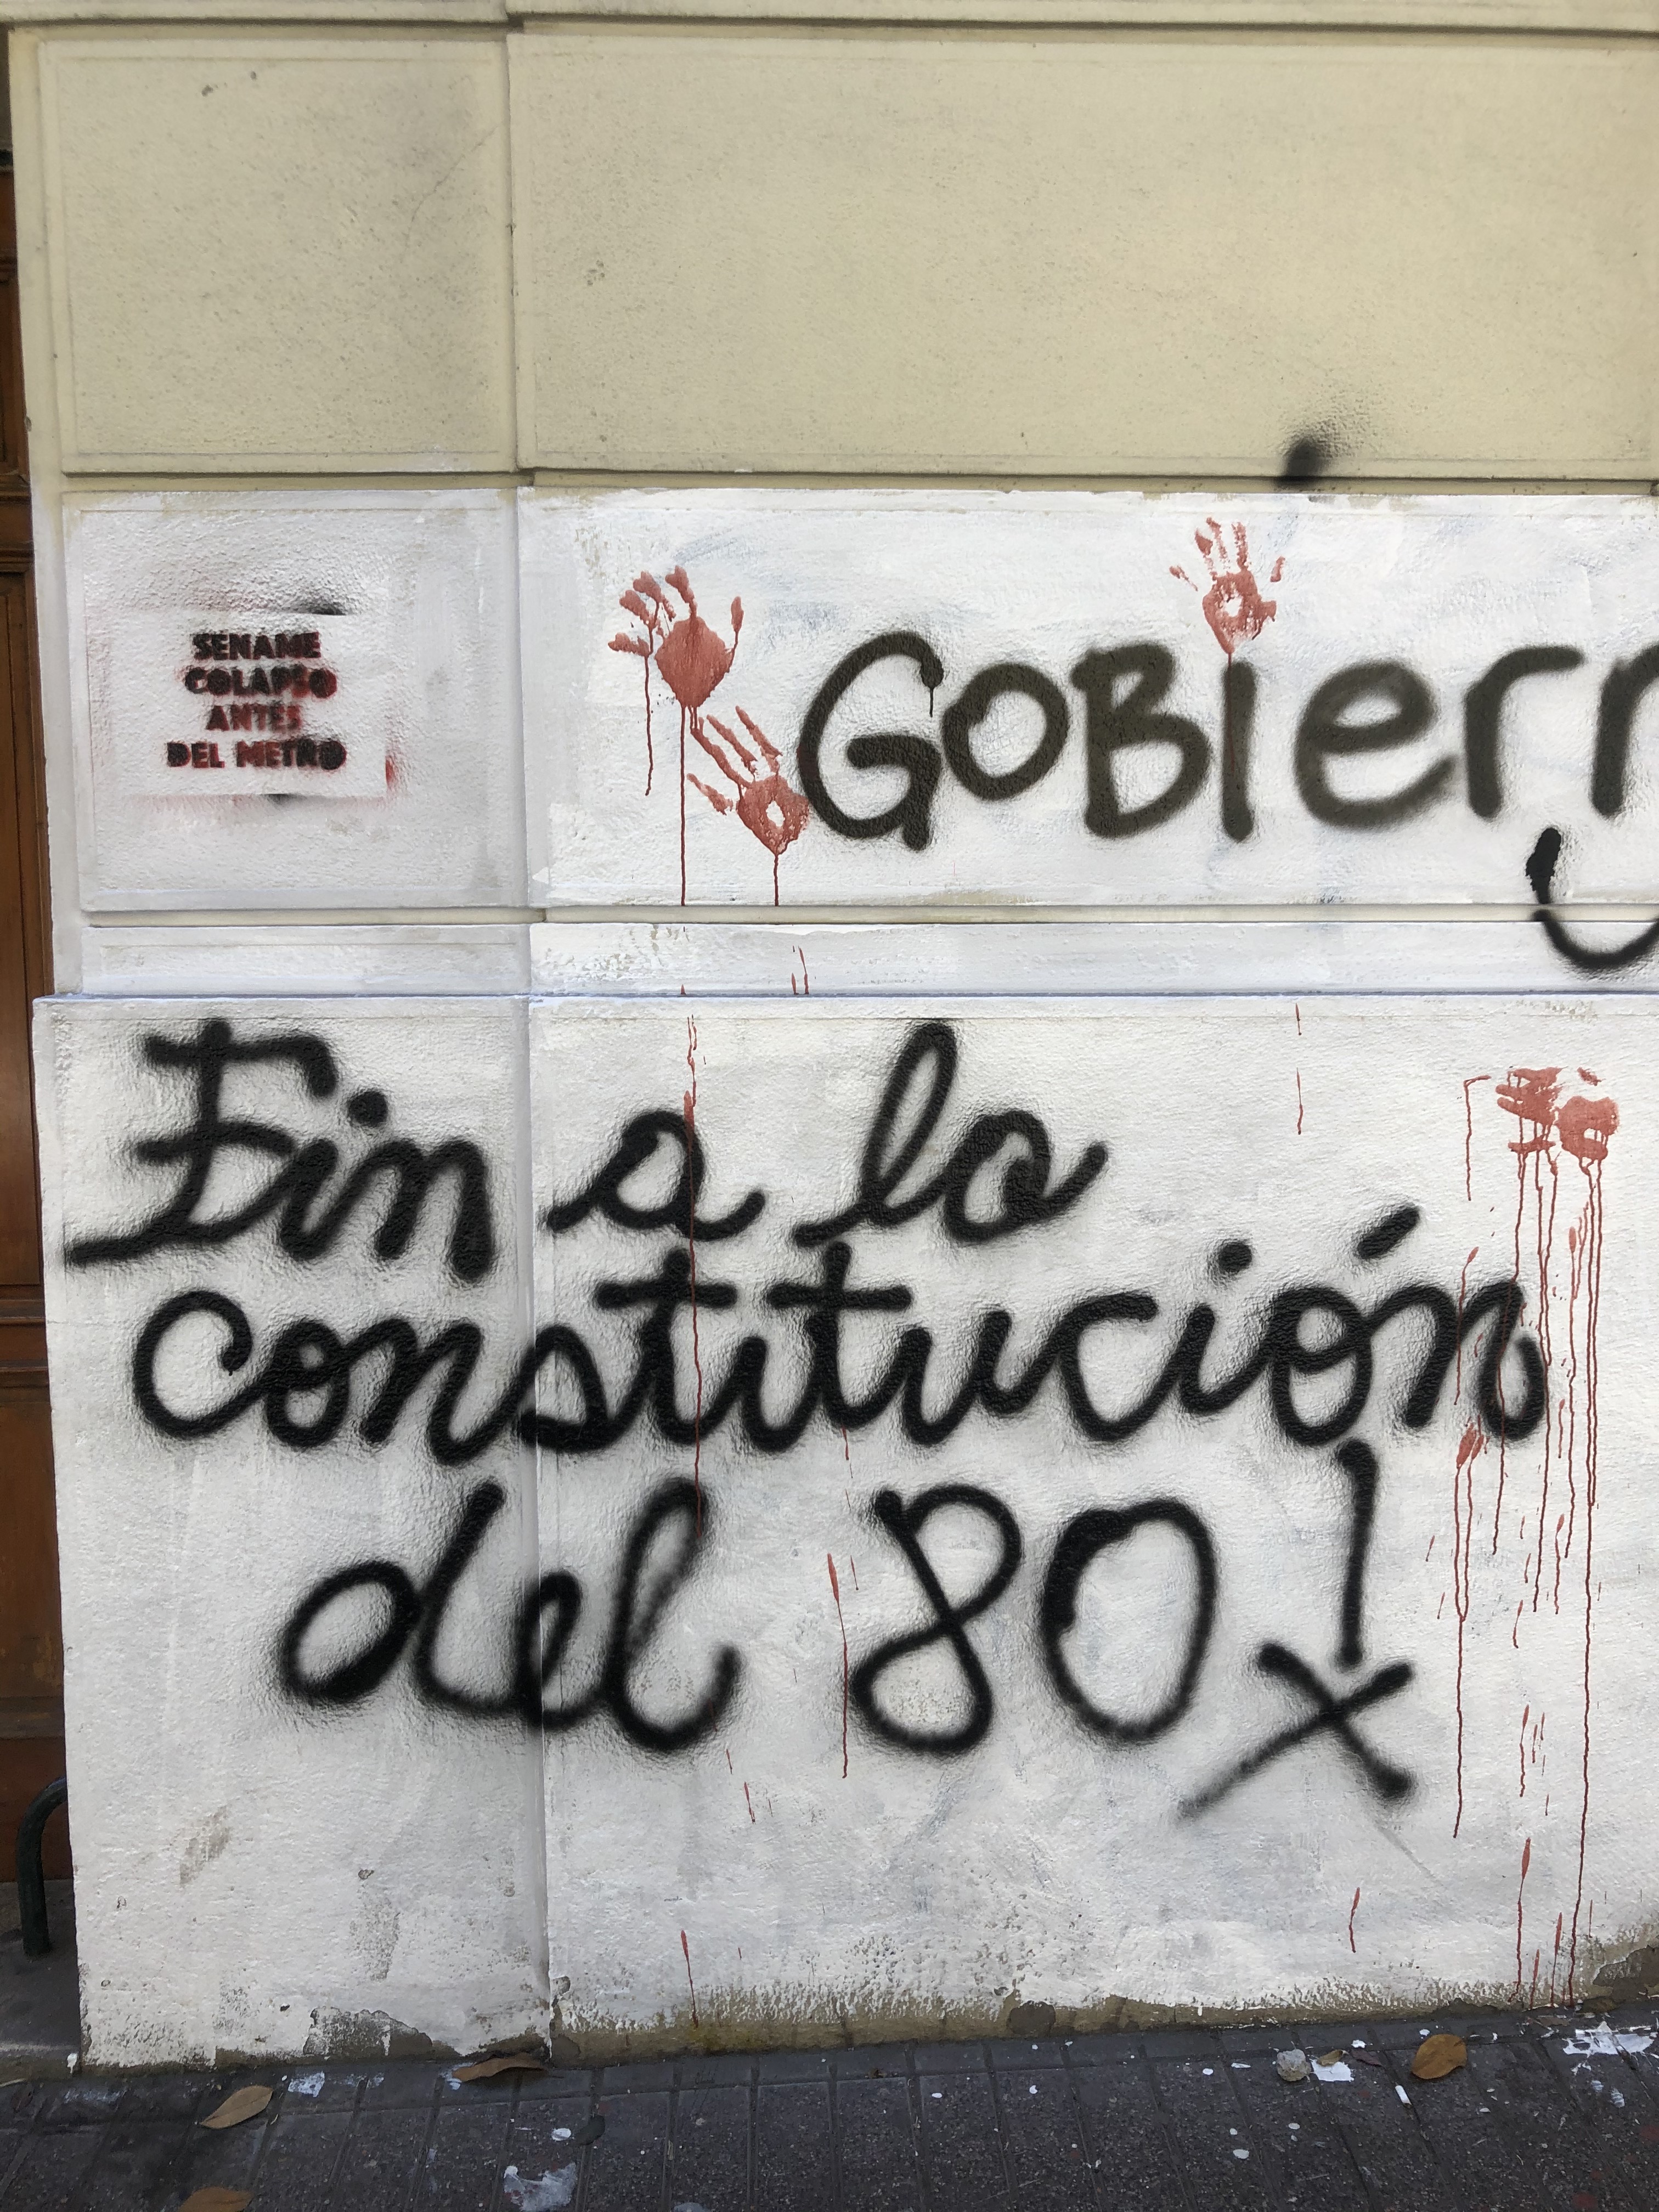 SENAME
COLAPSO
ANTES
DEL METRO
GOBIERN
Fin a la
constitución
del 80!